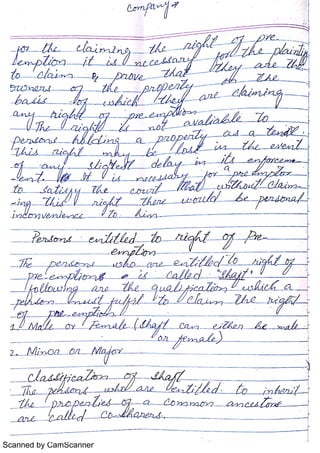 Company
for the claiming the right of pre
emption it is necessary for the plaintiff
to claim & prove that they are the
owners of the property on the
basis of which they are claiming
any right of pre-emption
The right is not avaliable to
persons holding a property as a
This right may be lost in the event
of any sligtest delay in its enforceme
-ent. It is necessary for a pre emptor
to satisfy the court that without claim
-ing this right there would be personal
inconvenience to him
Persons entitled to right of Pre-
emption
The persons who are entitled to right of
pre-emptions is called "shaft".
following are the qualification which a
person must fulfil to claim the right
of pre-emption
1. Male or Female (shaft can either be male
or female)
2. Minor or Major
Classification of Shaft
The persons who are entitled to inherit
the properties of a common ancestors
are called co-sharers.
Scanned by CamScanner